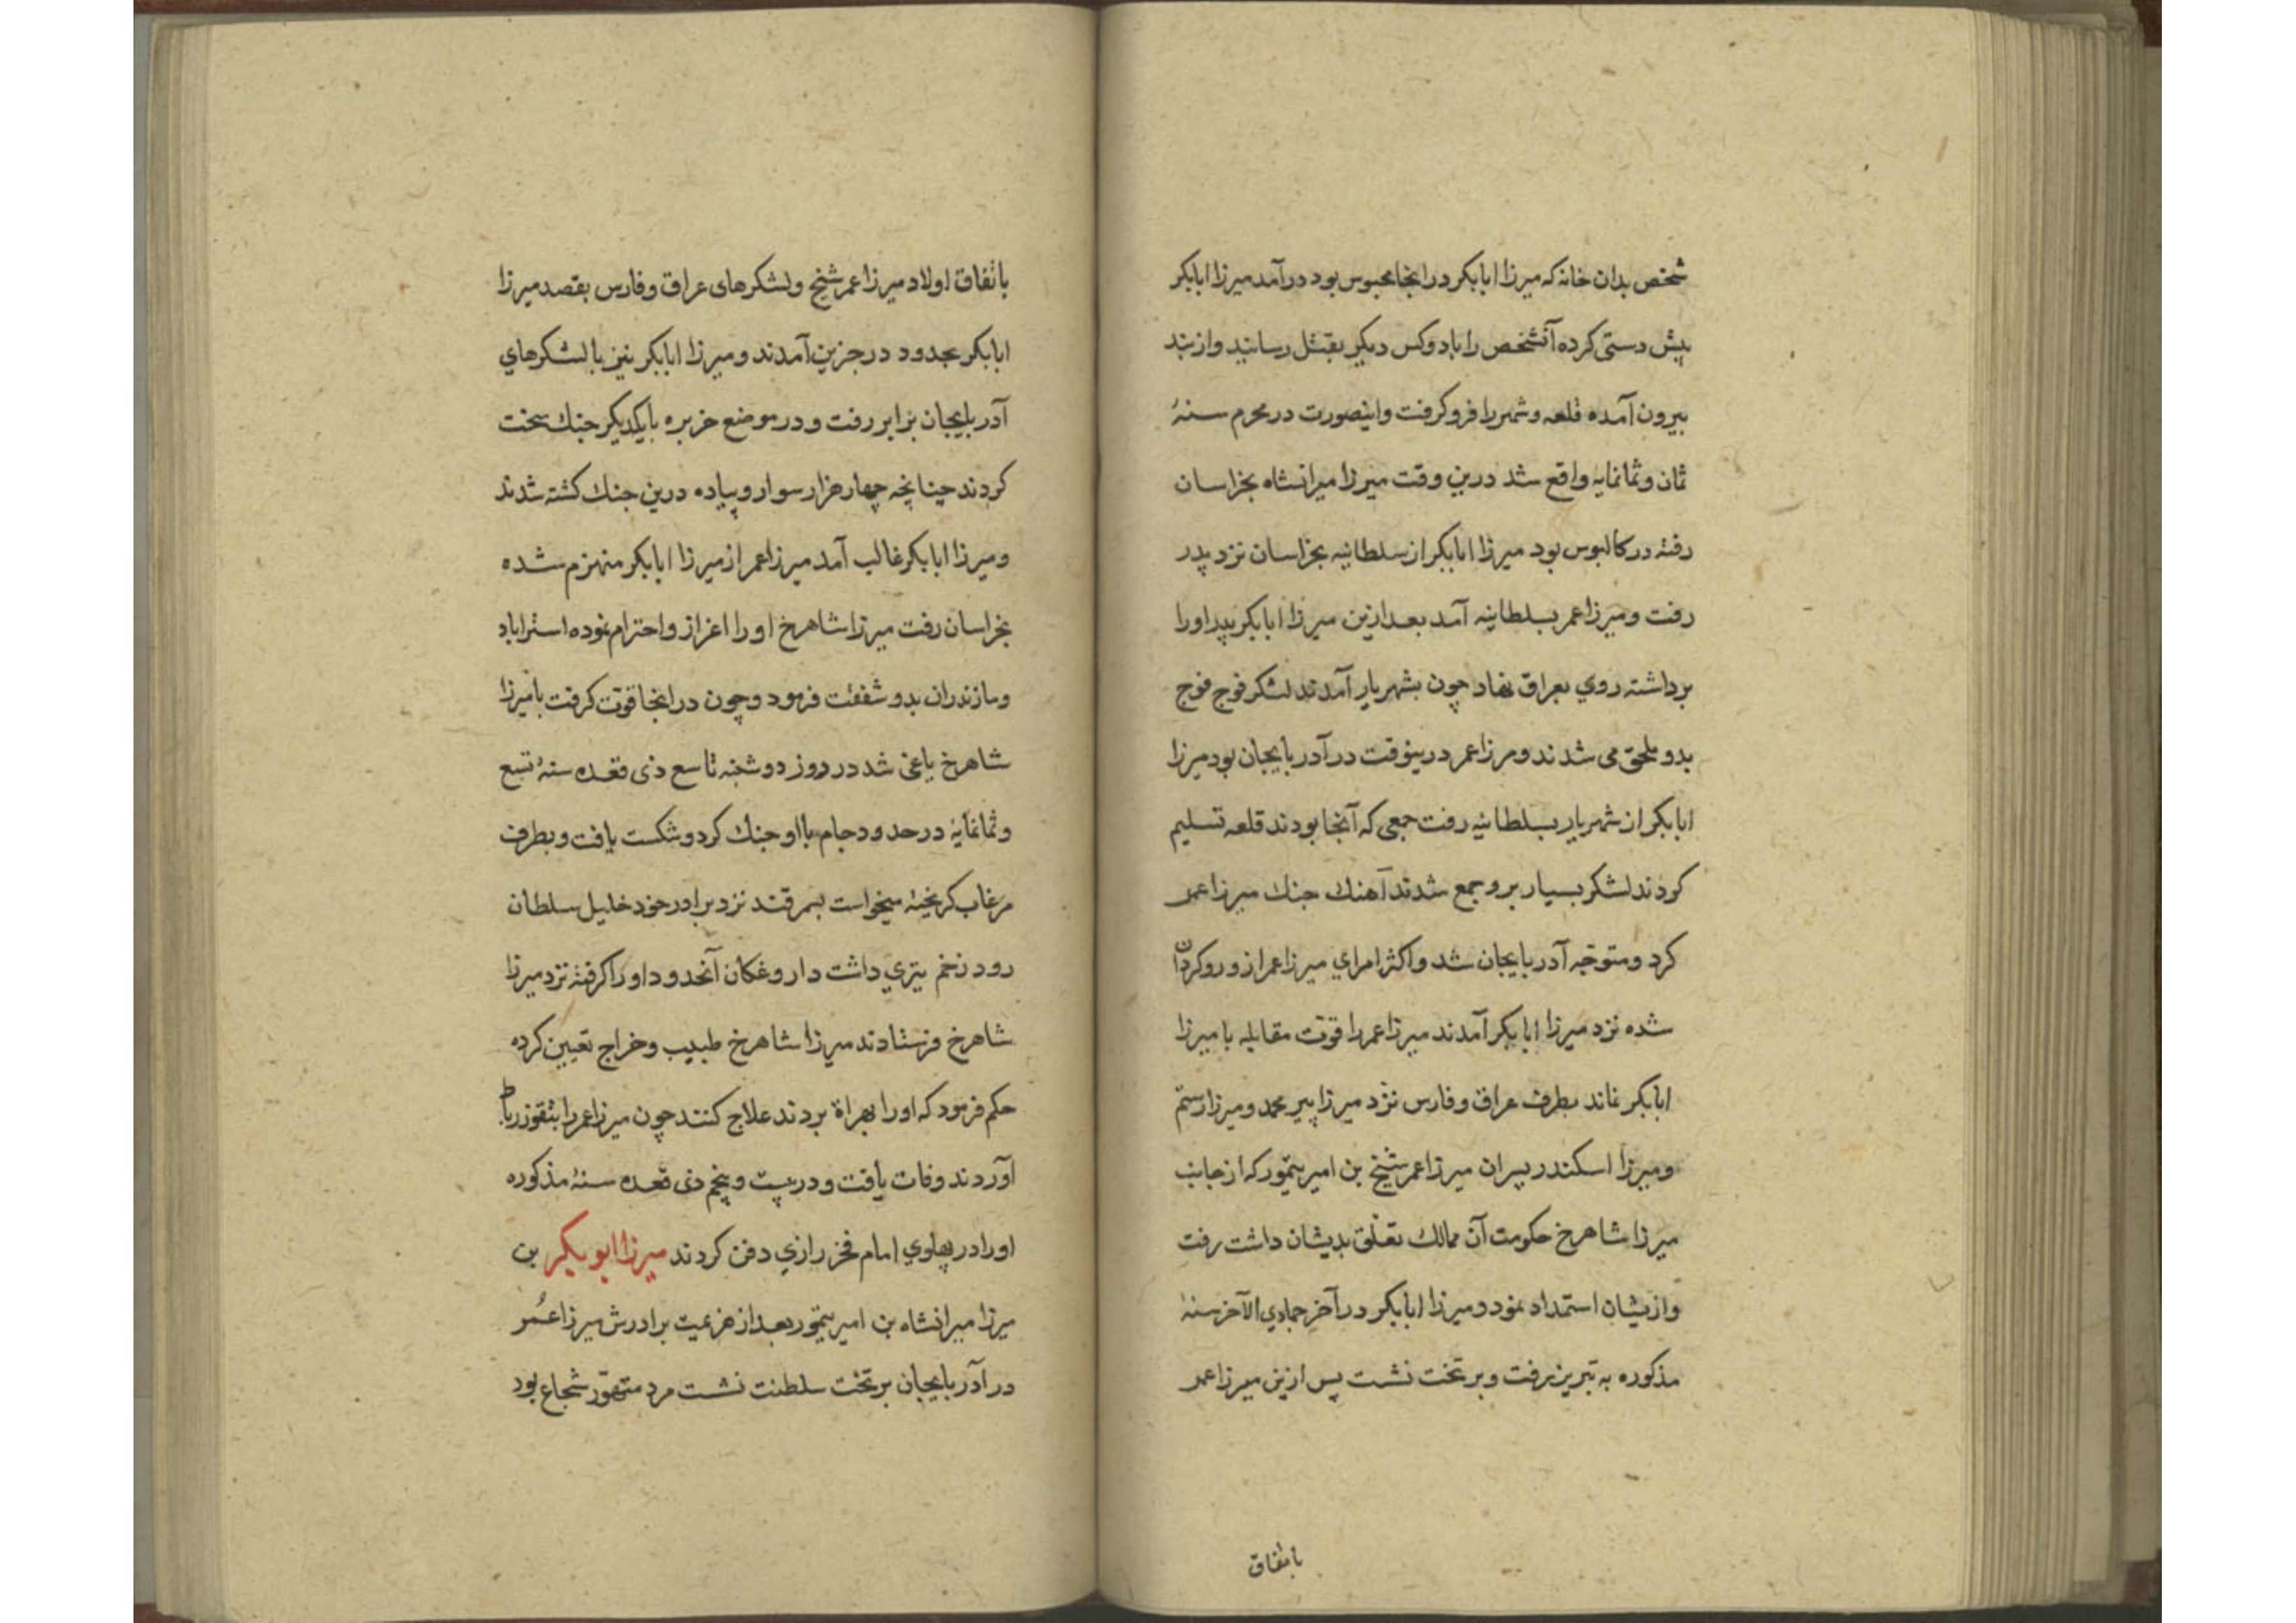 شخص بدان خانه که میرزا ابابکر در انجا محبوس بود درآمد میرزا ابابکر
پیش دستی کرده آنشخص را با دو کس دیکر بقتل رسانید و از بند
بیرون آمده قلعه و شهر را فرو کرفت و اینصورت در محرم سنهٔ
ثمان و ثمانمایه واقع شد درین وقت میرزا میرانشاه بخراسان
رفته در کالبوس بود میرزا ابابکر از سلطانیه بخراسان نزد پدر
رفت و میرزا عمر بسلطانیه آمد بعد ازین میرزا ابابکر پدر اورا
برداشته روي بعراق نهاد چون بشهریار آمدند لشکر فوج فوج
بدو ملحق می شدند و مرزا عمر درینوقت در آدربایجان بود میرزا
ابابکر از شهریار بسلطانیه رفت جمعی که آنجا بودند قلعه تسلیم
کردند لشکر بسیار برو جمع شدند آهنك جنك میرزا عمر
کرد و متوجّه آدربایجان شد و اکثر امراي میرزا عمر ازو روکردان
شده نزد میرزا ابابکر آمدند میرزا عمر را قوّت مقابله با میرزا
ابابکر نماند بطرف عراق و فارس نزد میرزا پیر محمد و میرزا رستم
و میرزا اسکندر پسران میرزا عمر شیخ بن امیر تیمور که از جانب
میرزا شاهرخ حکومت آن ممالك تعلّق بدیشان داشت رفت
و ازیشان استمداد نمود و میرزا ابابکر در آخر جمادي الآخر سنهٔ
مذکوره به تبریز رفت و بر تخت نشست پس ازین میرزا عمر
باتفاق
باتفاق اولاد میرزا عمر شیخ و لشکرهای عراق و فارس بقصد میرزا
ابابکر بحدود درجزین آمدند و میرزا ابابکر نیز با لشکرهاي
آدربایجان برابر رفت و در موضع خربره بایکدیکر جنك سخت
کردند چنانچه چهار هزار سوار و پیاده درین جنك کشته شدند
و میرزا ابابکر غالب آمد میرزا عمر از میرزا ابابکر منهزم شده
بخراسان رفت میرزا شاهرخ اورا اعزاز و احترام نموده استراباد
و مازندران بدو شفقت فرمود و چون در انجا قوّت کرفت با میرزا
شاهرخ یاغی شد در روز دوشنبه تاسع ذی قعده سنهٔ تسع
و ثمانمایهٔ در حدود جام با او جنك کرد و شکست یافت و بطرف
مرغاب کریخته میخواست بسمرقند نزد برادر خود خلیل سلطان
رود زخم تیري داشت داروغکان آنحدود اورا کرفته نزد میرزا
شاهرخ فرستادند میرزا شاهرخ طبیب و خراج تعیین کرده
حکم فرمود که اورا بهراة بردند علاج کنند چون میرزا عمر را بتقوز رباط
آوردند وفات یافت و در بیست و پنجم ذی قعده سنهٔ مذکوره
اورا در پهلوي امام فخر رازي دفن کردند میرزا ابو بکر بن
میرزا میرانشاه بن امیر تیمور بعد از هزیمت برادرش میرزا عُمر
در آدربایجان بر تخت سلطنت نشست مرد متهوّر شجاع بود